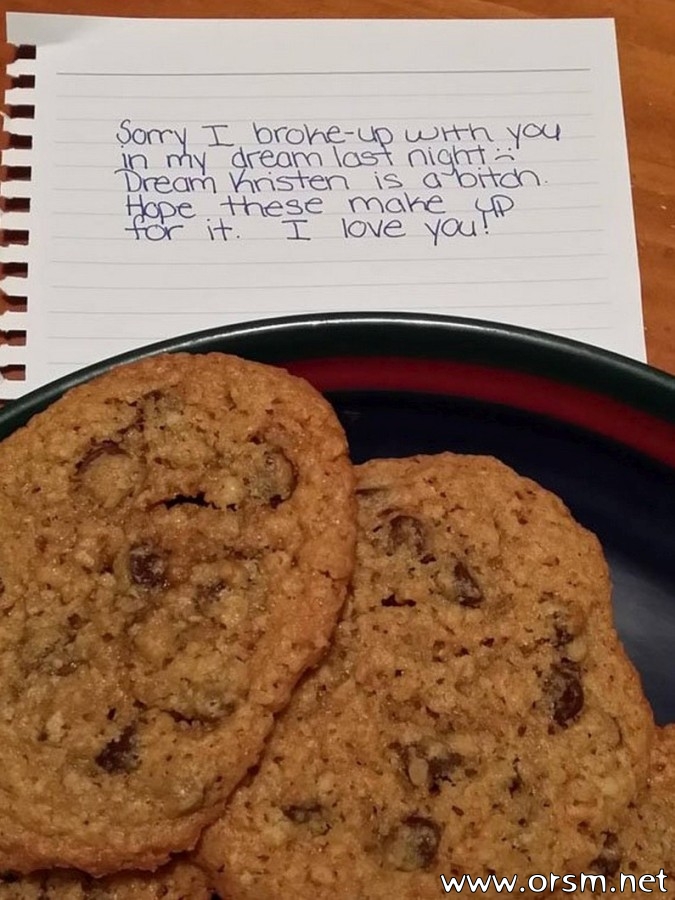 Sorry I broke-up with you
in my dream last night :(
Dream Kristen is a bitch.
Hope these make up
for it. I love you!
www.orsm.net